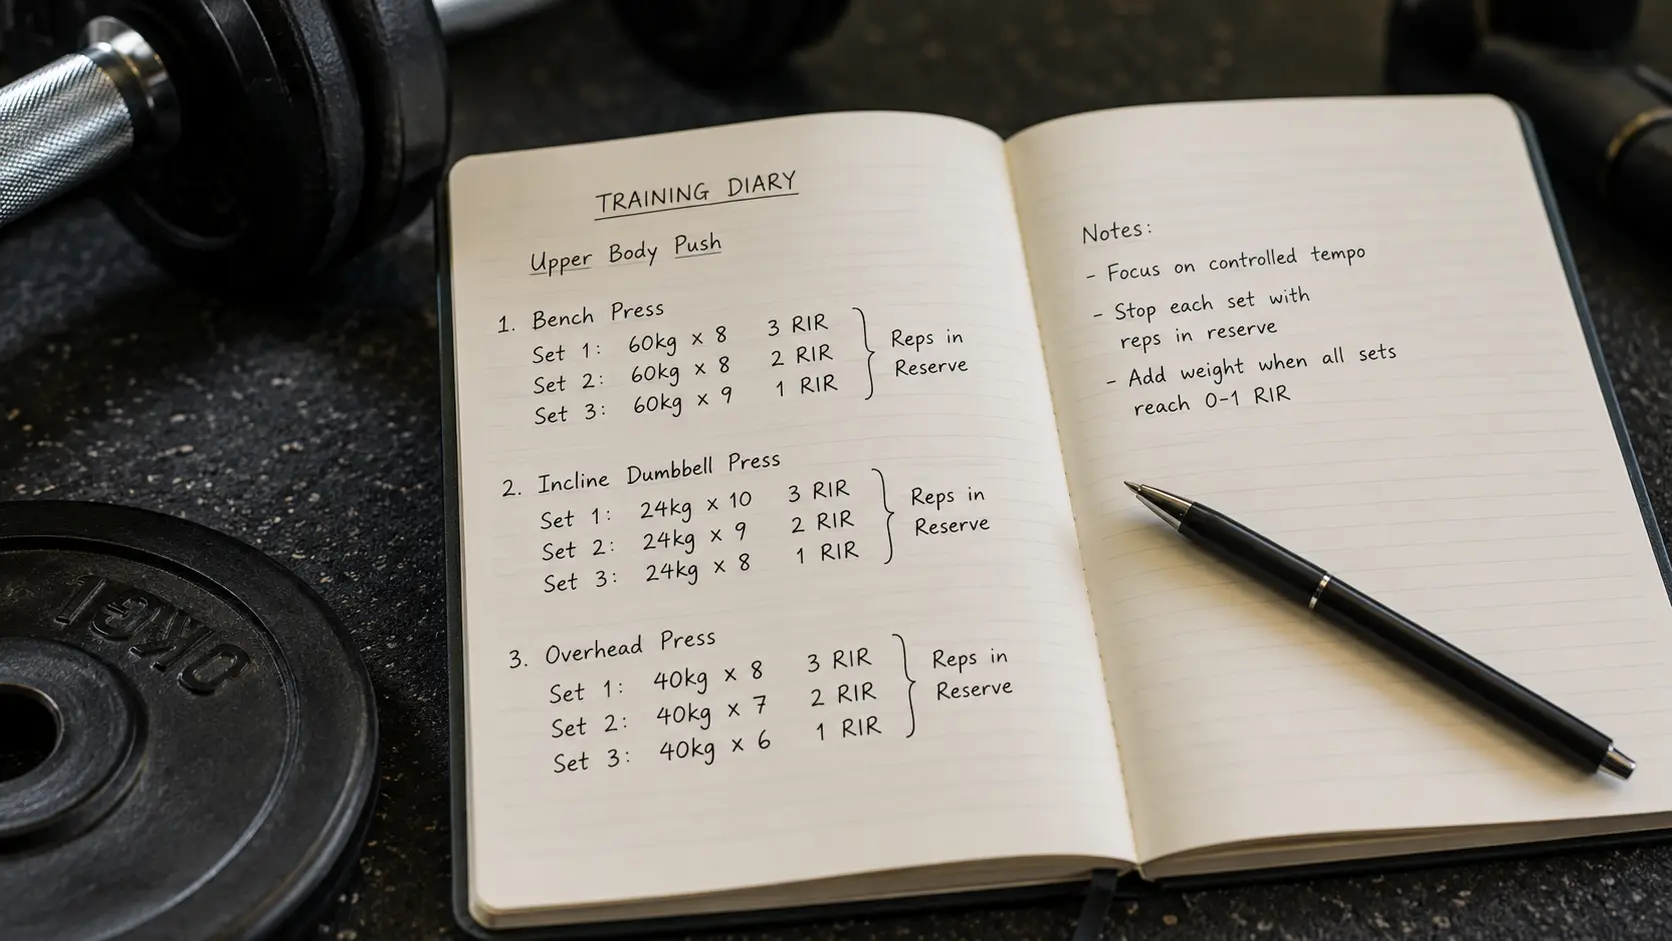 TRAINING DIARY
Upper Body Push
1. Bench Press
Set 1: 60kg × 8 3 RIR
Set 2: 60kg × 8 2 RIR
Set 3: 60kg × 9 1 RIR
Reps in
Reserve
2. Incline Dumbbell Press
Set 1: 24kg × 10 3 RIR
Set 2: 24kg × 9 2 RIR
Set 3: 24kg × 8 1 RIR
Reps in
Reserve
3. Overhead Press
Set 1: 40kg × 8 3 RIR
Set 2: 40kg × 7 2 RIR
Set 3: 40kg × 6 1 RIR
Reps in
Reserve
Notes:
- Focus on controlled tempo
- Stop each set with
reps in reserve
- Add weight when all sets
reach 0-1 RIR